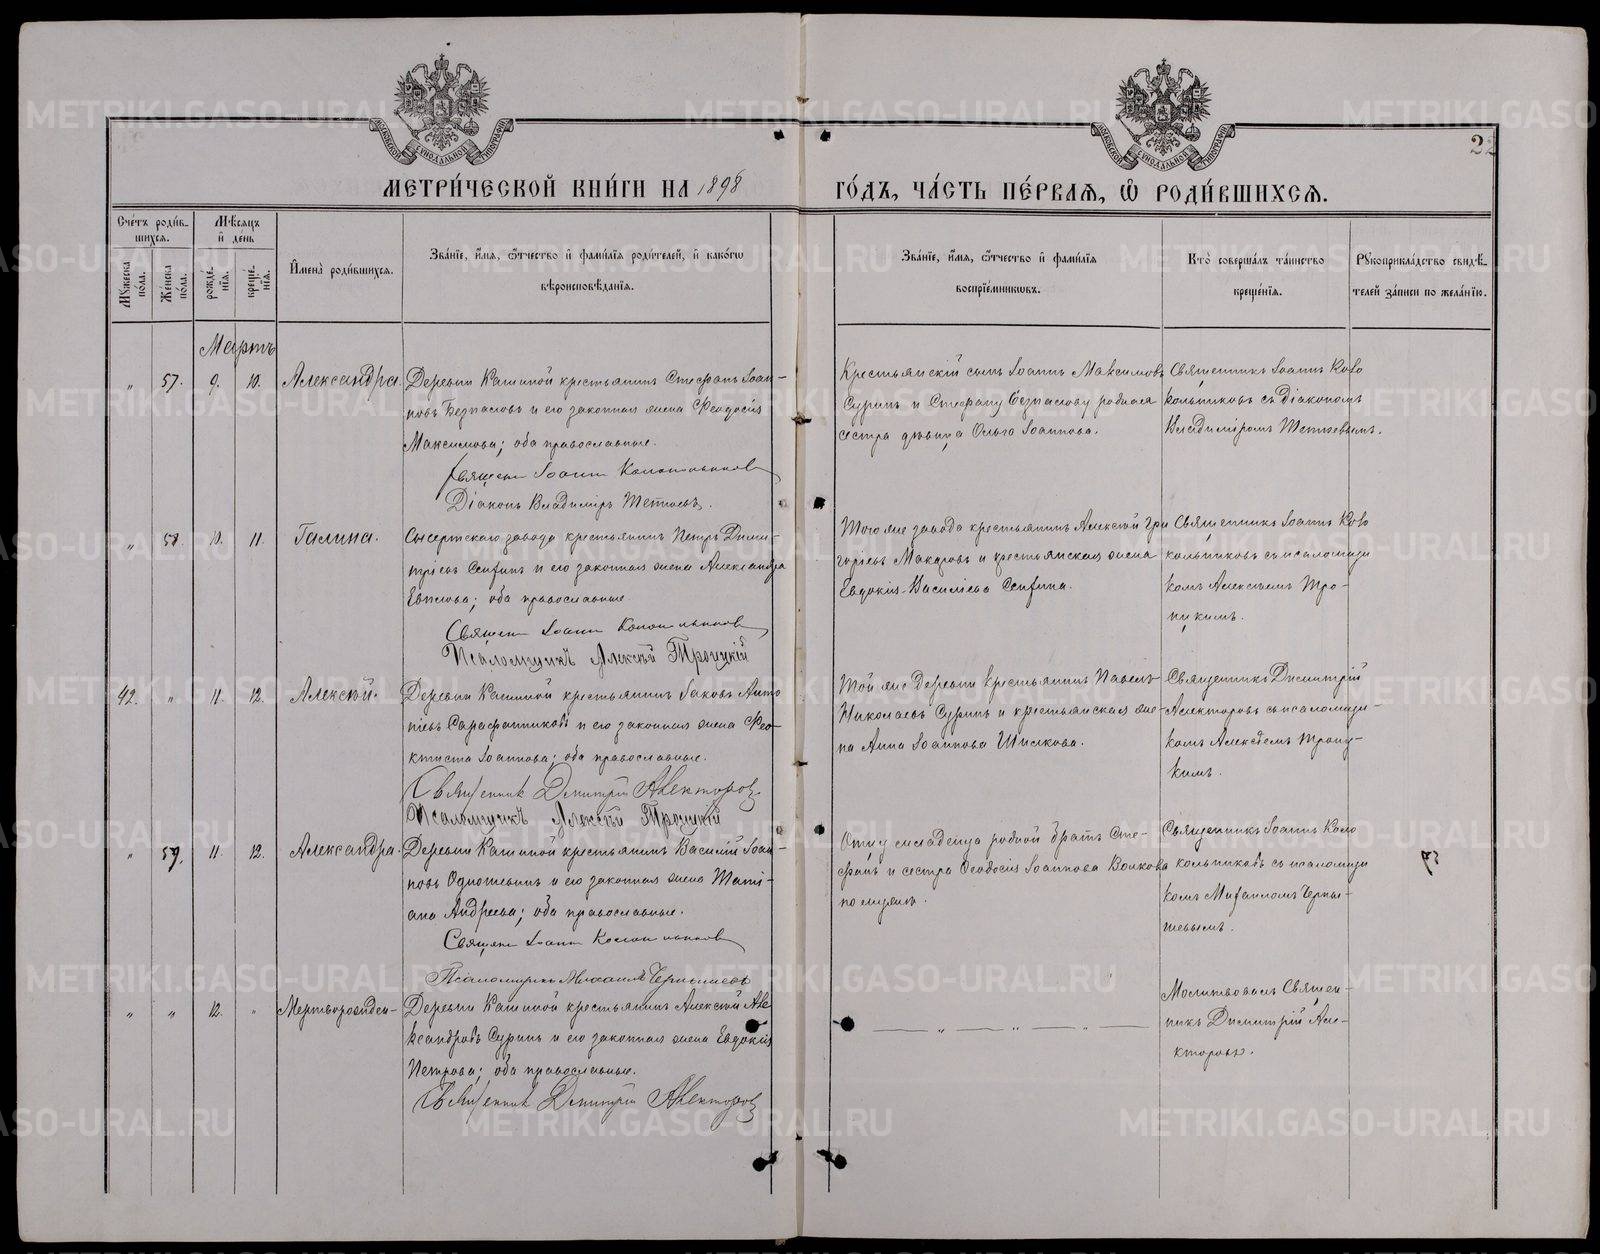 МЕТРИ́ЧЕСКОЙ КНИ́ГИ НА 1898 ГО́ДЪ, ЧА́СТЬ ПЕ́РВАЯ, Ѿ РОДИ́ВШИХСЯ.
22
Сче́тъ роди́вшихся.
Му́жеска по́ла.
Же́нска по́ла.
Мѣ́сяцъ и де́нь
рожде́нія.
креще́нія.
Имена̀ роди́вшихся.
Зва́ніе, и́мя, ѻ́тчество и фами́лія роди́телей, и како́гѡ вѣроисповѣ́данія.
Зва́ніе, и́мя, ѻ́тчество и фами́лія воспріе́мникѡвъ.
Кто̀ соверша́лъ та́инство креще́нія.
Рукоприкла́дство свидѣ́телей за́писи по жела́нію.
Мартъ
" 57. 9. 10. Александра.
Деревни Кашиной крестьянинъ Стефанъ Іоан-
новъ Безпаловъ и его законная жена Феодосія
Максимова; оба православные.
Священ Іоанн Колокольников
Діаконъ Владиміръ
Крестьянскій сынъ Іоаннъ Максимовъ
Суринъ и Стефану Безпалову родная
сестра дѣвица Ольга Іоаннова.
Священникъ Іоаннъ Коло
кольниковъ съ діакономъ
Владиміромъ
" 58. 10. 11. Галина.
Сысертскаго завода крестьянинъ Петръ Дими-
тріевъ и его законная жена Александра
оба православные
Священ Іоанн Колокольников
Псаломщикъ Алексѣй Троицкій
Того же завода крестьянинъ Алексѣй Гри
горьевъ Макаровъ и крестьянская жена
Евдокія Васильева
Священникъ Іоаннъ Коло
кольниковъ съ псаломщи
комъ Алексѣемъ Тро-
ицкимъ.
42. " 11. 12. Алексѣй.
Деревни Кашиной крестьянинъ Іаковъ Анто
ніевъ Сарафанниковъ и его законная жена Фео-
ктиста Іоаннова; оба православные.
Священник Димитрій Алекторов
Псаломщикъ Алексѣй Троицкій
Той же деревни крестьянинъ Павелъ
Николаевъ Суринъ и крестьянская же-
на Анна Іоаннова Шилкова.
Священникъ Димитрій
Алекторовъ съ псаломщи-
комъ Алексѣемъ Троиц-
кимъ.
" 59. 11. 12. Александра.
Деревни Кашиной крестьянинъ Василій Іоан-
новъ и его законная жена Тати-
ана Андреева; оба православные.
Священ Іоанн Колокольников
Псаломщикъ Михаилъ Чернышевъ
Отцу младенца родной братъ Сте-
фанъ и сестра Феодосія Іоаннова Волкова
по мужѣ.
Священникъ Іоаннъ Коло
кольниковъ съ псаломщи
комъ Михаиломъ Черны-
шевымъ.
" " 12. " Мертворожден-
Деревни Кашиной крестьянинъ Алексѣй Але
ксандровъ Суринъ и его законная жена Евдокія
Петрова; оба православные.
Священник Димитрій Алекторов
— " — " — " —
Молитвовалъ Священ-
никъ Димитрій Але-
кторовъ.
METRIKI.GASO-URAL.RU